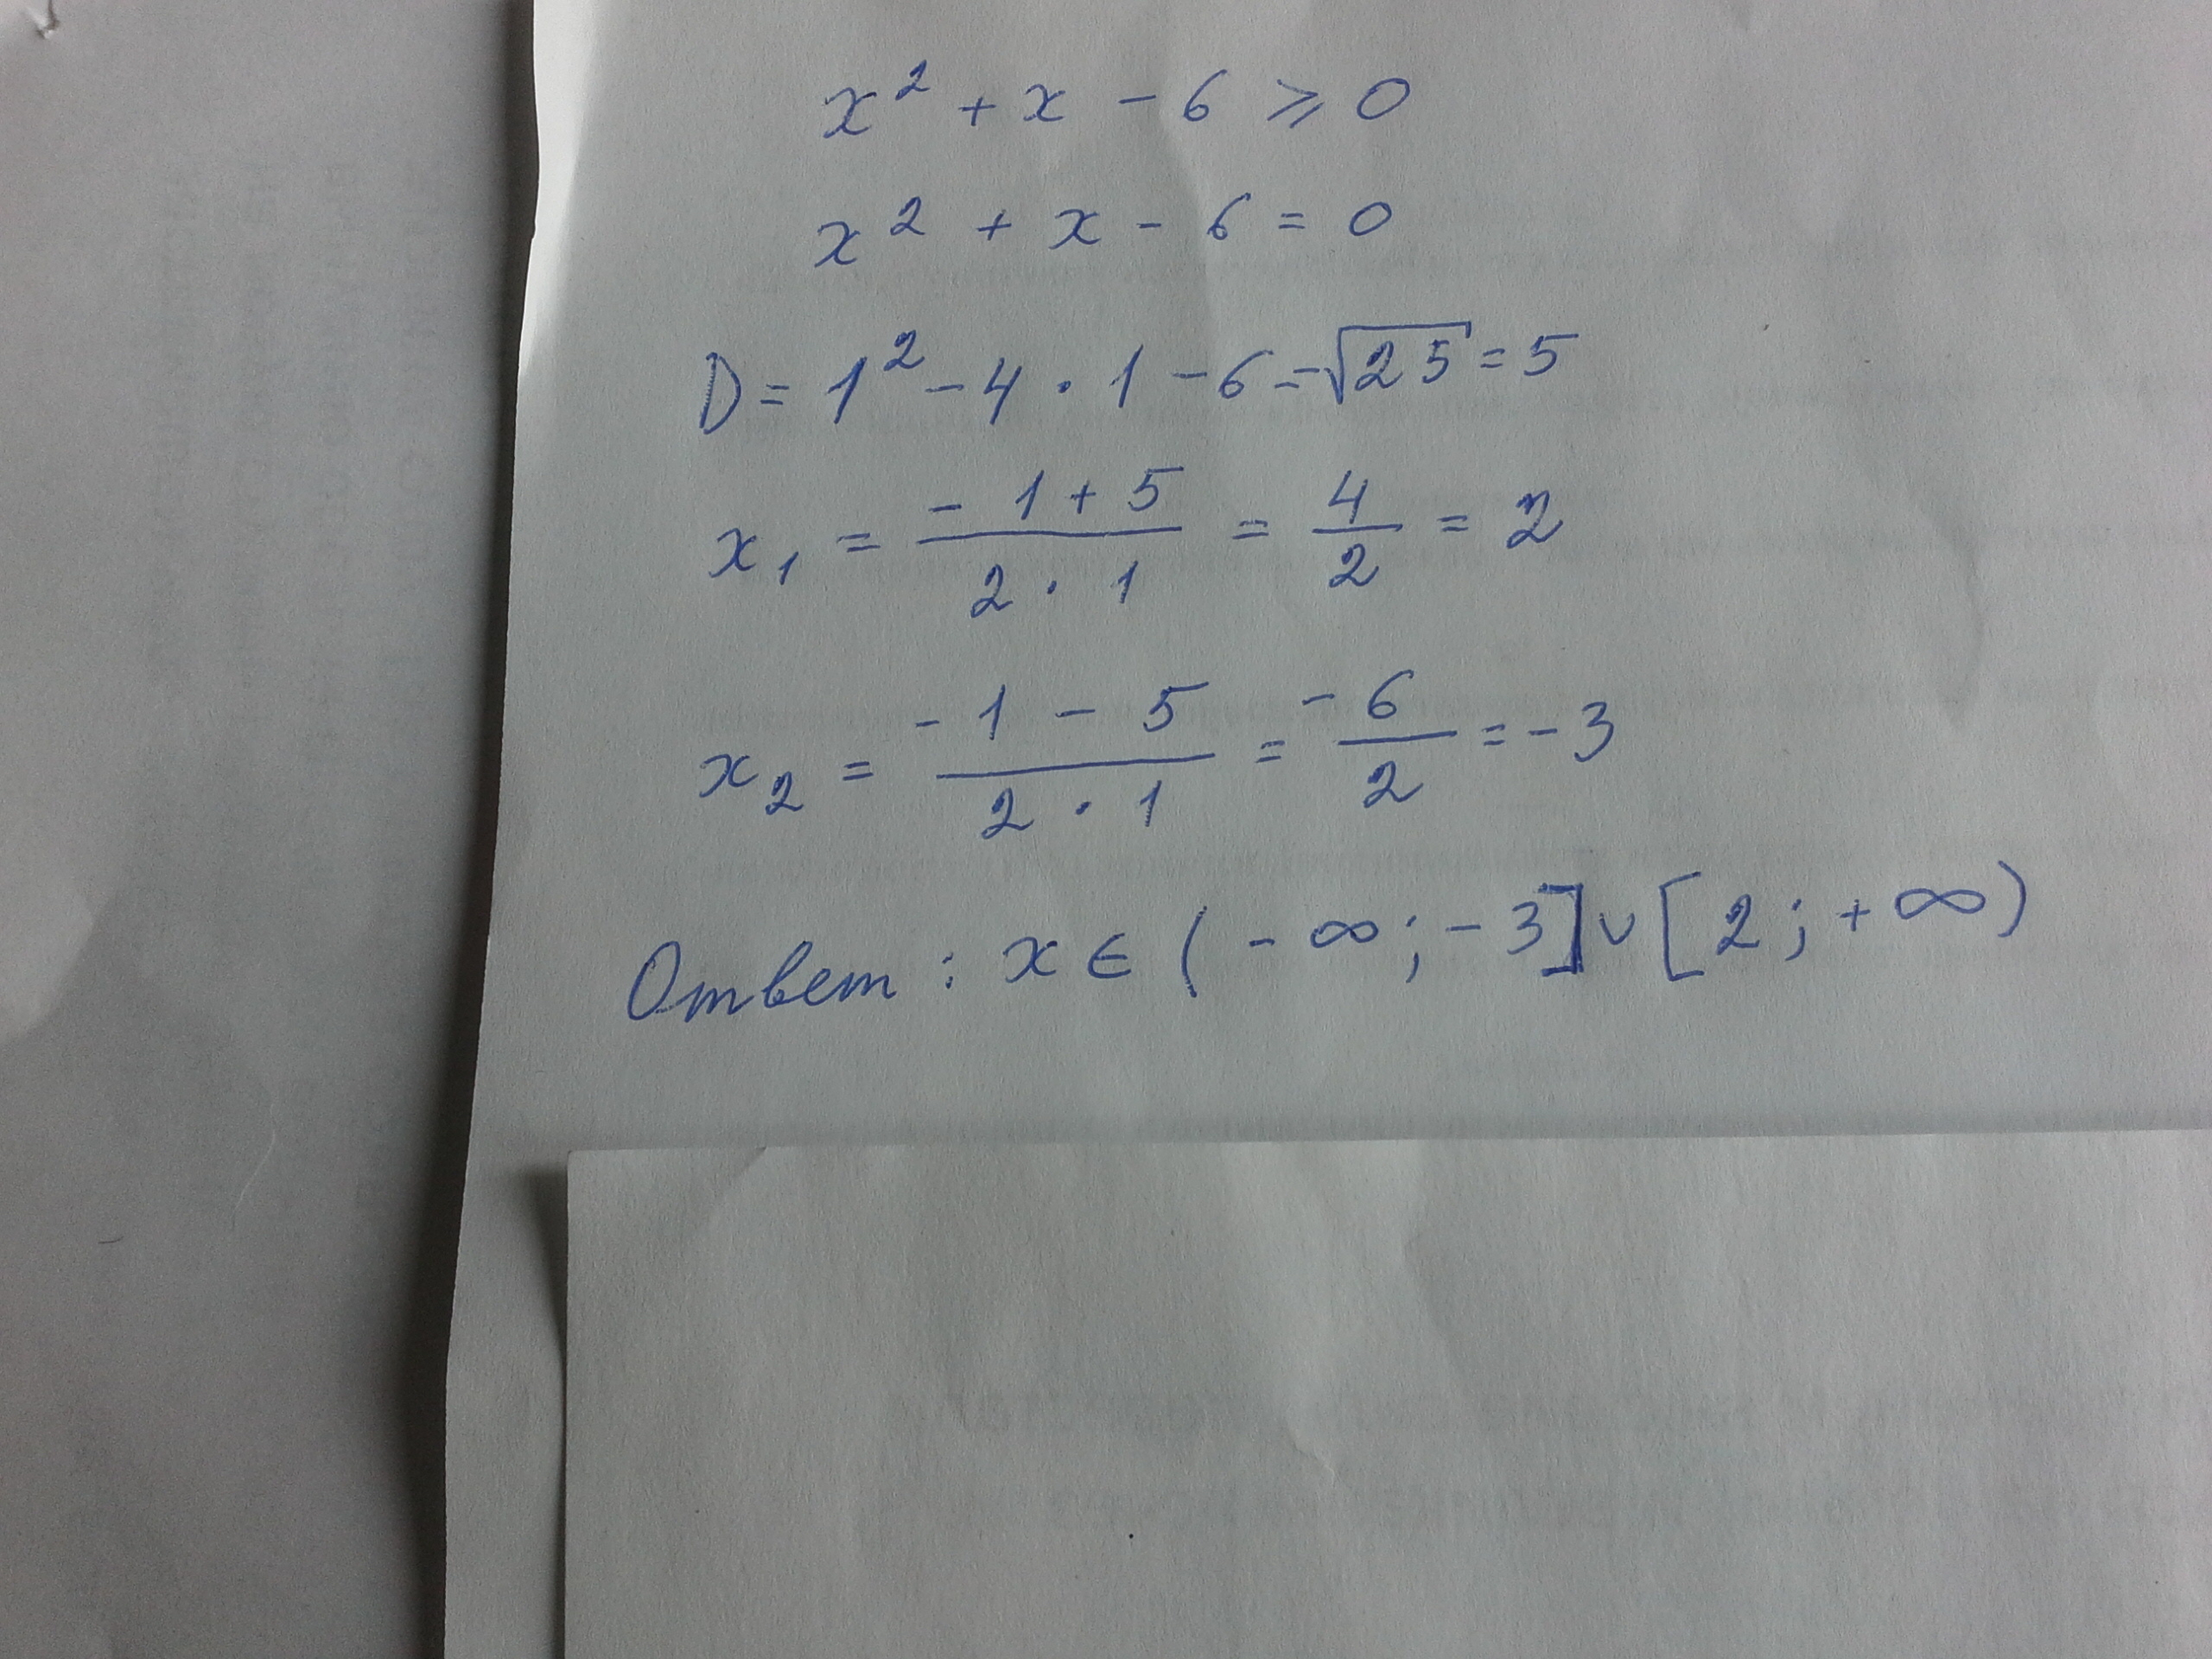 x² + x - 6 ⩾ 0
x² + x - 6 = 0
D = 1² - 4 · 1 - 6 = √25 = 5
x₁ = (- 1 + 5)/(2 · 1) = 4/2 = 2
x₂ = (- 1 - 5)/(2 · 1) = (- 6)/2 = - 3
Ответ : x ∈ ( - ∞ ; - 3] ∪ [ 2 ; + ∞ )